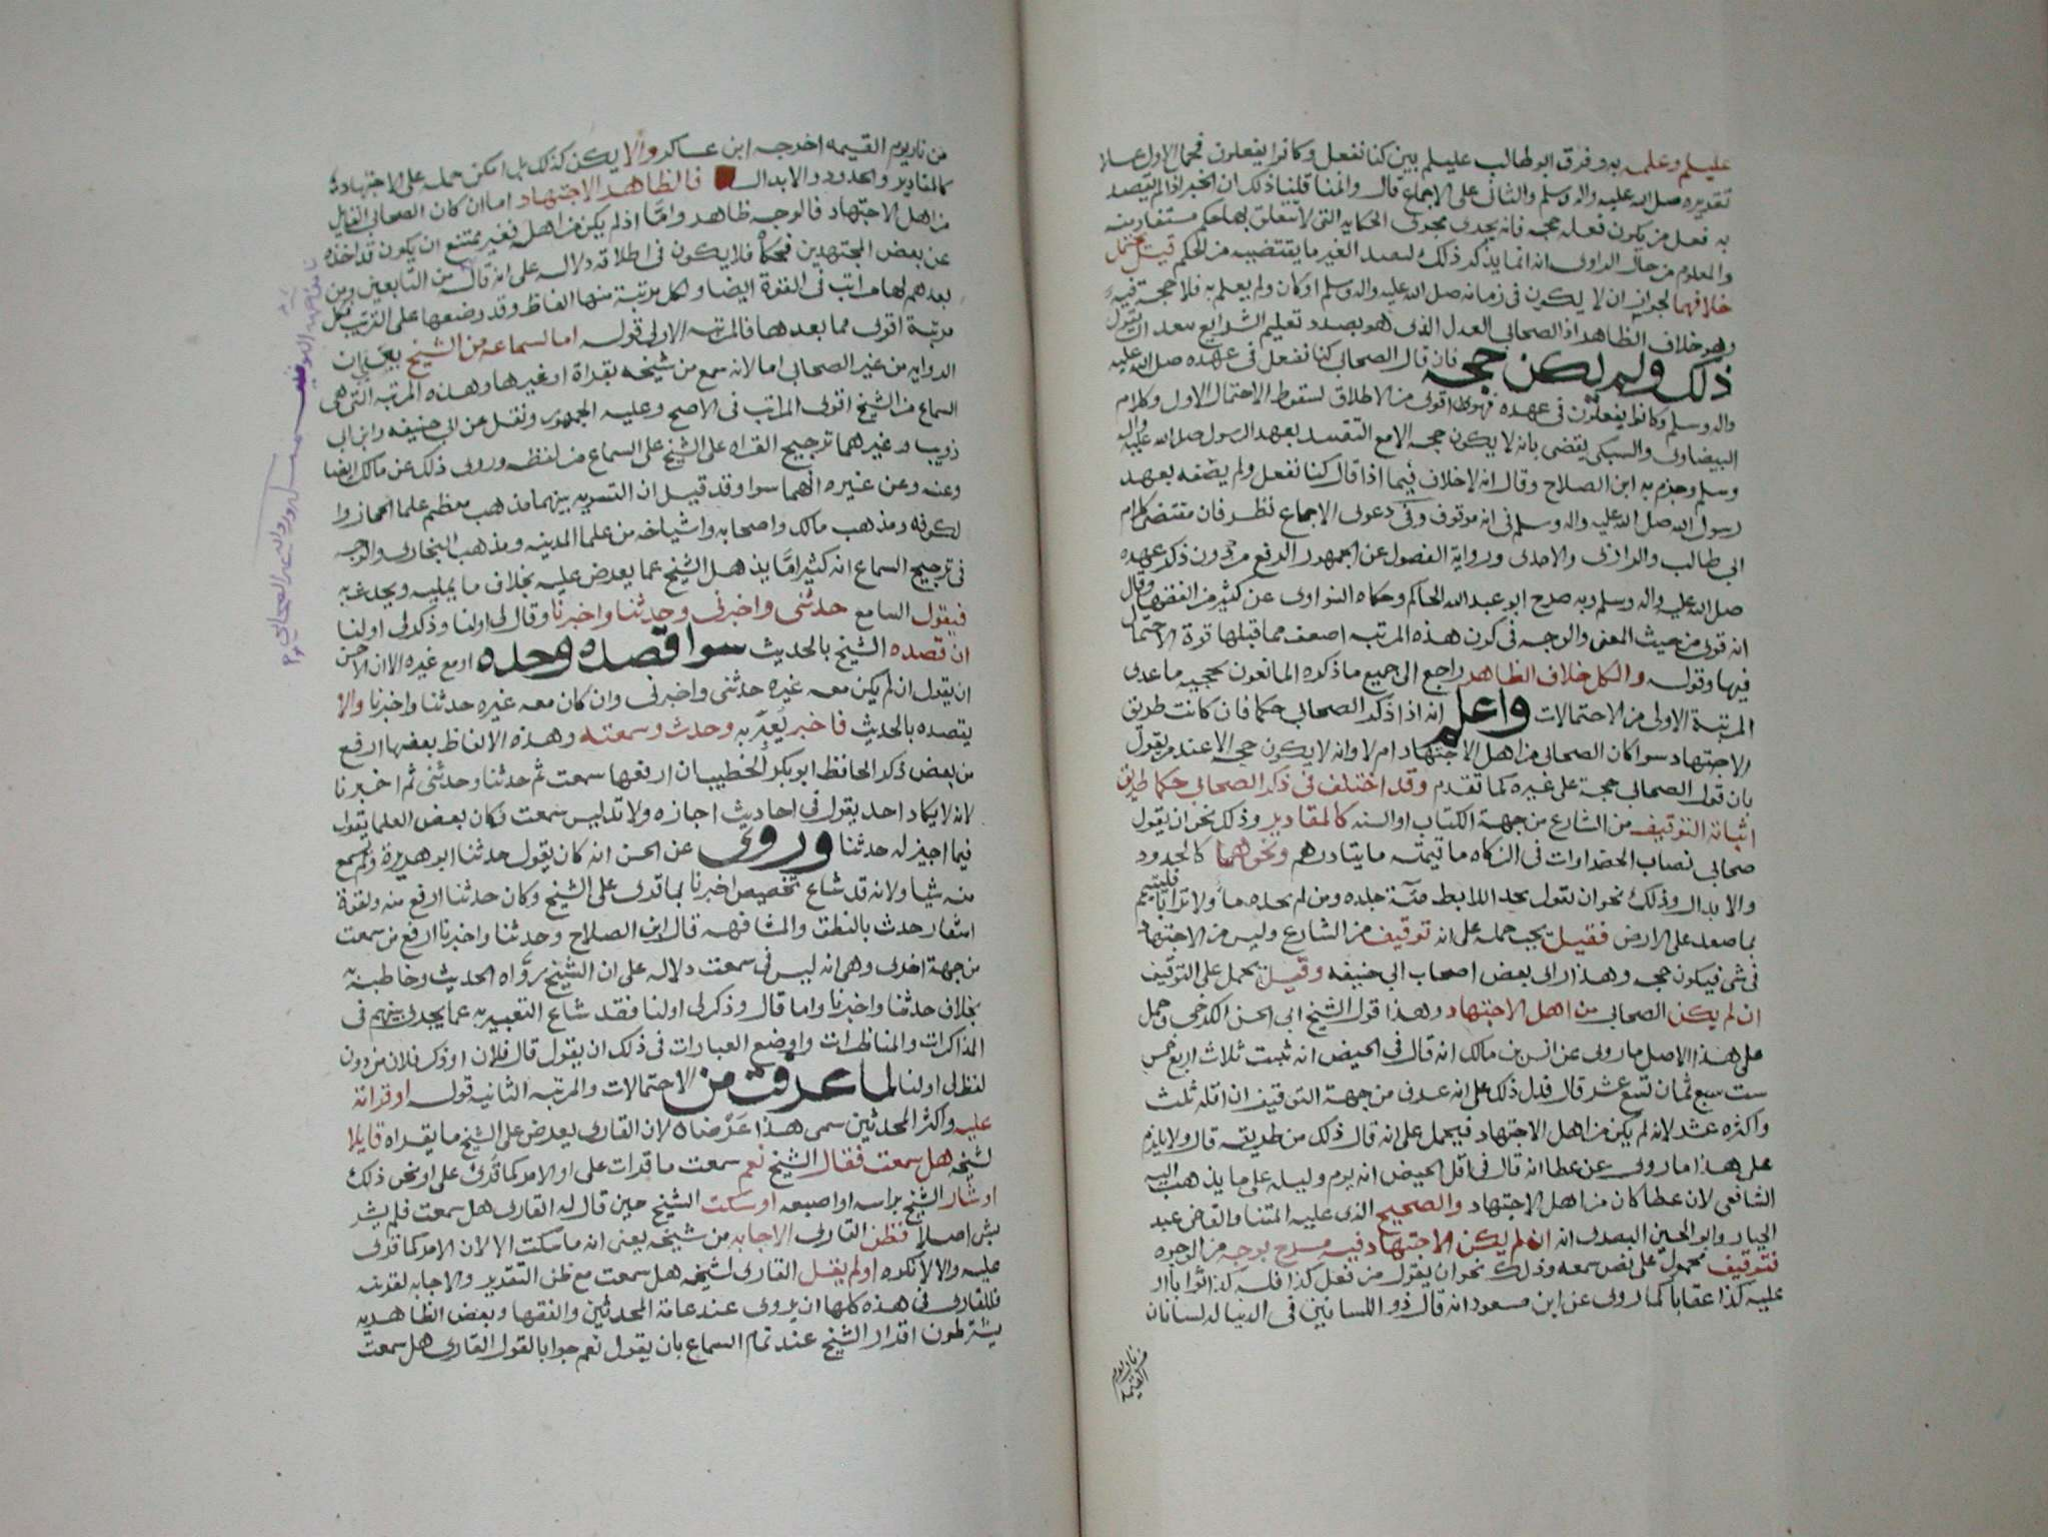 عليلم وعلمه به وفرق ابو طالب عليلم بين كنا نفعل وكانوا يفعلون فحمل الاول على
تقديره صلى الله عليه واله وسلم والثانى على الاجماع قال وانما قلنا ذلك ان الخبر اذا لم يقصد
به فعل من يكون فعله حجه فانه يجرى مجرى الحكايه التى لا يتعلق بها حكم مستفاد منه
والمعلوم من حال الراوى انه انما يذكر ذلك ليفيد الغير ما يقتضيه من الحكم قيل يحتمل
خلافهما لجواز ان لا يكون فى زمانه صلى الله عليه واله وسلم او كان ولم يعلم به فلا حجة فيه
وهو خلاف الظاهر اذ الصحابى العدل الذى هو بصدد تعليم الشرايع يبعد ان يقول
ذلك ولم يكن حجه فان قال الصحابى كنا نفعل فى عهده صلى الله عليه
واله وسلم وكانوا يفعلون فى عهده فهو اقوى من الاطلاق لسقوط الاحتمال الاول وكلام
البيضاوى والسبكى يقضى بانه لا يكون حجه الا مع التقييد بعهد الرسول صلى الله عليه واله
وسلم وجزم به ابن الصلاح وقال انه لا خلاف فيما اذا قال كنا نفعل ولم يضفه بعهد
رسول الله صلى الله عليه واله وسلم فى انه موقوف وفى دعوى الاجماع نظر فان مقتضى كلام
ابى طالب والرازى والامدى ورواية الفصول عن الجمهور الرفع من دون ذكر عهده
صلى الله عليه واله وسلم وبه صرح ابو عبد الله الحاكم وحكاه النواوى عن كثير من الفقها وقال
انه قوى من حيث المعنى والوجه فى كون هذه المرتبه اضعف مما قبلها قوة الاحتمال
فيها وقوله والكل خلاف الظاهر راجع الى جميع ما ذكره المانعون بحجيه ما عدى
المرتبة الاولى من الاحتمالات واعلم انه اذا ذكر الصحابى حكما فان كانت طريق
الاجتهاد سوا كان الصحابى من اهل الاجتهاد ام لا وانه لا يكون حجه الا عند من يقول
بان قول الصحابى حجة على غيره كما تقدم وقد اختلف فى ذكر الصحابى حكما طريق
اثباته التوقيف من الشارع من جهة الكتاب او السنه كالمقادير وذلك نحو ان يقول
صحابى نصاب الخضراوات فى الزكاه ما قيمته مايتا درهم ونحوهما كالحدود
والابدال وذلك نحو ان يقول يحد اللايط مئة جلده ومن لم يجد ما ولا ترابا فليتيمم
بما صعد على الارض فقيل يجب حمله على انه توقيف من الشارع وليس من الاجتهاد
فى شى فيكون حجه وهذا راى بعض اصحاب ابى حنيفه وقيل يحمل على التوقيف
ان لم يكن الصحابى من اهل الاجتهاد وهذا قول الشيخ ابى الحسن الكرخى وحمل
على هذا الاصل ما روى عن انس بن مالك انه قال فى الحيض انه ثبت ثلاث اربع خمس
ست سبع ثمان تسع عشر قال فدل ذلك على انه عرف من جهة التوقيف ان اقله ثلث
واكثره عشر لانه لم يكن من اهل الاجتهاد فيحمل على انه قال ذلك من طريقه قال ولا يلزم
على هذا ما روى عن عطا انه قال فى اقل الحيض انه يوم وليله على ما يذهب اليه
الشافعى لان عطا كان من اهل الاجتهاد والصحيح الذى عليه ايمتنا والقاضى عبد
الجبار وابو الحسين البصرى انه ان لم يكن الاجتهاد فيه مسرح بوجه من الوجوه
فتوقيف محمول على نص سمعه وذلك نحو ان يقول من فعل كذا فله كذا ثوابا او
عليه كذا عقابا كما روى عن ابن مسعود انه قال ذو اللسانين فى الدنيا له لسانان
من نار يوم
القيمه
من نار يوم القيمه اخرجه ابن عساكر والا يكن كذلك بل امكن حمله على الاجتهاد
كالمقادير والحدود والابدال فالظاهر الاجتهاد اما ان كان الصحابى القايل
من اهل الاجتهاد فالوجه ظاهر واما اذ لم يكن من اهله فغير ممتنع ان يكون قد اخذه
عن بعض المجتهدين فحكاه فلا يكون فى اطلاقه دلاله على انه قاله من التابعين ومن
بعدهم لها مراتب فى القوة ايضا ولكل مرتبة منها الفاظ وقد وضعها على الترتيب فكل
مرتبة اقوى مما بعدها فالمرتبه الاولى قوله اما لسماعه من الشيخ يعنى ان
الروايه من غير الصحابى اما لانه سمع من شيخه بقراة او غيرها وهذه المرتبه التى هى
السماع من الشيخ اقوى المراتب فى الاصح وعليه الجمهور ونقل عن ابى حنيفه وابن ابى
ذويب وغيرهما ترجيح القراه على الشيخ على السماع من لفظه وروى ذلك عن مالك ايضا
وعنه وعن غيره انهما سوا وقد قيل ان التسويه بينهما مذهب معظم علما الحجاز وا
لكوفه ومذهب مالك واصحابه واشياخه من علما المدينه ومذهب البخارى والوجه
فى ترجيح السماع انه كثيرا ما يذهل الشيخ عما يعرض عليه بخلاف ما يمليه ويحدث به
فيقول السامع حدثنى واخبرنى وحدثنا واخبرنا وقال لى اولنا وذكر لى اولنا
ان قصده الشيخ بالحديث سوا قصده وحده او مع غيره الا ان الاحسن
ان يقول ان لم يكن معه غيره حدثنى واخبرنى وان كان معه غيره حدثنا واخبرنا والا
يقصده بالحديث فاخبر يعبر به وحدث وسمعته وهذه الالفاظ بعضها ارفع
من بعض ذكر الحافظ ابو بكر الخطيب ان ارفعها سمعت ثم حدثنا وحدثنى ثم اخبرنا
لانه لا يكاد احد يقول فى احاديث اجازه ولا تدليس سمعت وكان بعض العلما يقول
فيما اجيز له حدثنا وروى عن الحسن انه كان يقول حدثنا ابو هريرة ولم يسمع
منه شيا ولانه قد شاع تخصيص اخبرنا بما قرى على الشيخ وكان حدثنا ارفع منه ولقوة
اشعار حدث بالنطق والمشافهه قال ابن الصلاح وحدثنا واخبرنا ارفع من سمعت
من جهة اخرى وهى انه ليس فى سمعت دلاله على ان الشيخ روّاه الحديث وخاطبه به
بخلاف حدثنا واخبرنا واما قال وذكر لى اولنا فقد شاع التعبير به عما يجرى بينهم فى
المذاكرات والمناظرات واوضع العبارات فى ذلك ان يقول قال فلان او ذكر فلان من دون
لفظ لى اولنا لما عرفت من الاحتمالات والمرتبه الثانيه قوله او قراته
عليه واكثر المحدثين سمى هذا عَرْضاً لان القارى يعرض على الشيخ ما يقراه قايلا
لشيخه هل سمعت فقال الشيخ نعم سمعت ما قرات على او الامر كما قُرئ على او نحو ذلك
او شار الشيخ براسه او اصبعه او سكت الشيخ حين قال له القارى هل سمعت فلم يشر
بشى اصلا فظن القارى الاجابه من شيخه يعنى انه ما سكت الا لان الامر كما قرى
عليه والا لانكره او لم يقل القارى لشيخه هل سمعت مع ظن التقرير والاجابه لقرينه
فللقارى فى هذه كلها ان يروى عند عامة المحدثين والفقها وبعض الظاهريه
يشترطون اقرار الشيخ عند تمام السماع بان يقول نعم جوابا لقول القارى هل سمعت